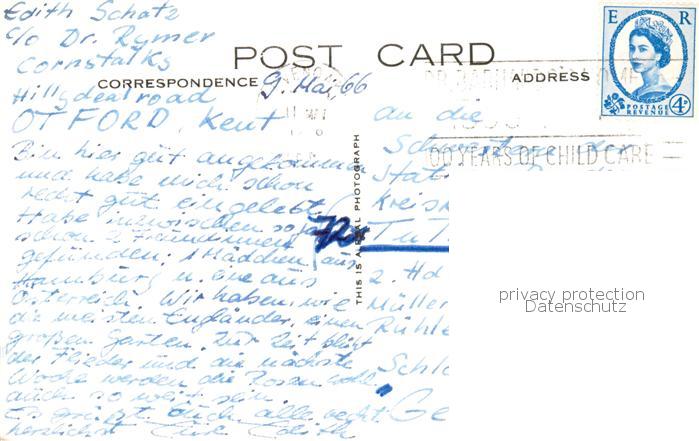 Edith Schatz
c/o Dr. Rymer
Cornstalks
Hillydeal road
OTFORD, Kent
POST CARD
CORRESPONDENCE
ADDRESS
9. Mai, 66
E R
POSTAGE REVENUE 4D
YEARS OF CHILD CARE
Bin hier gut angekommen
und habe mich schon
recht gut eingelebt.
Habe inzwischen sogar
schon 2 Freundinnen
gefunden; 1 Mädchen aus
Hamburg u. eine aus
Österreich. Wir haben, wie
die meisten Engländer, einen
großen Garten. Zur Zeit blüht
der Flieder und die nächste
Woche werden die Rosen wohl
auch so weit sein.
Es grüßt Euch alle recht
herzlichst Eure Edith
THIS IS A REAL PHOTOGRAPH
72
an die
der
Stat
Kreis
Tutt
2. Hd
Müller
Rühle
Schl
Ge
privacy protection
Datenschutz